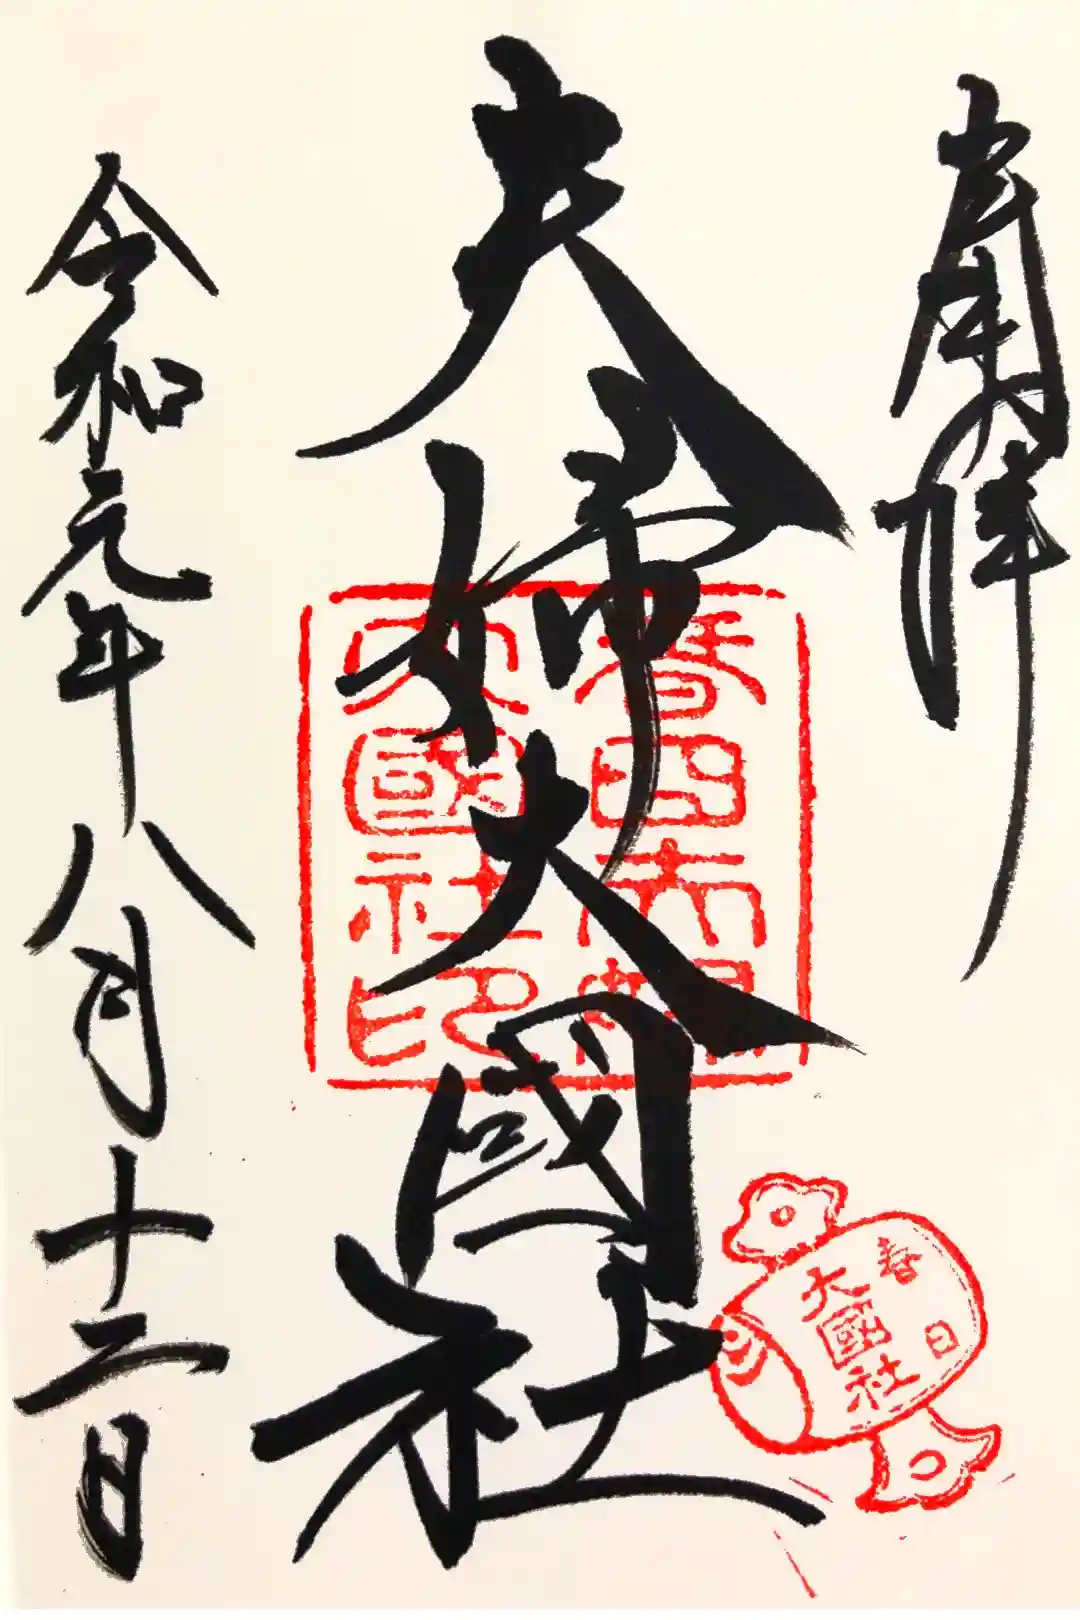 奉拝
夫婦大國社
春日大神
大國社印
春日
大國社
令和元年八月十二日